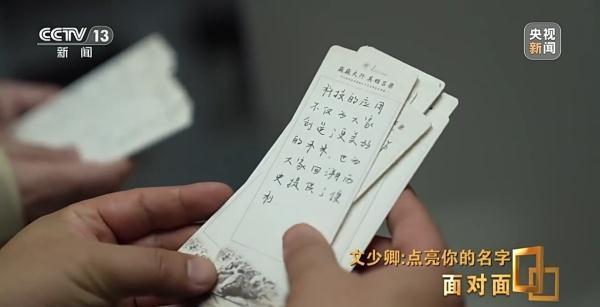 CCTV 13
新闻
央视
新闻
巍巍太行 英雄名录
科技的应用
不仅为大家
创造了更美好
的未来，也为
大家回溯历
史提供了便
利
文少卿:点亮你的名字
面对面